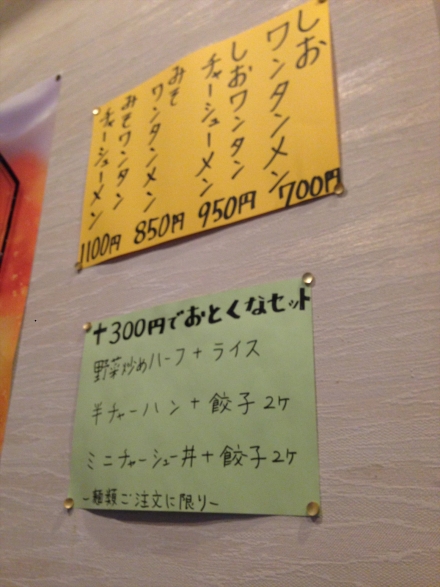 しお
ワンタンメン
700円
しおワンタン
チャーシューメン
950円
みそ
ワンタンメン
850円
みそワンタン
チャーシューメン
1100円
+300円でおとくなセット
野菜炒めハーフ+ライス
半チャーハン+餃子2ケ
ミニチャーシュー丼+餃子2ケ
~麺類ご注文に限り~